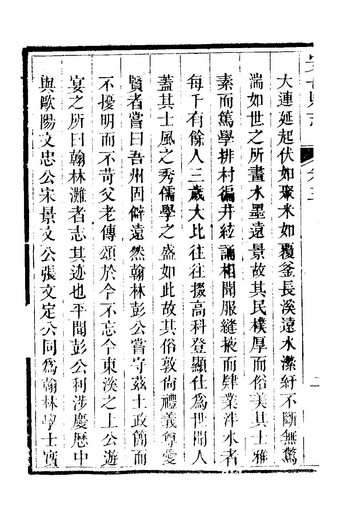 大連延起伏如聚米如覆釜長溪遠水瀠紆不斷無驚
湍如世之所畫水墨遠景故其民樸厚而俗美其士雅
素而篤學排村徧井絃誦相聞服縫掖而肄業泮水者
每千有餘人三歲大比往往掇高科登顯仕爲世聞人
蓋其士風之秀儒學之盛如此故其俗敦尚禮義尊愛
賢者嘗曰吾州固僻遠然翰林彭公嘗守茲土政簡而
不擾明而不苛父老傳頌於今不忘今東溪之上公遊
宴之所曰翰林灘者志其迹也平聞彭公利涉慶歷中
與歐陽文忠公宋景文公張文定公同爲翰林學士實